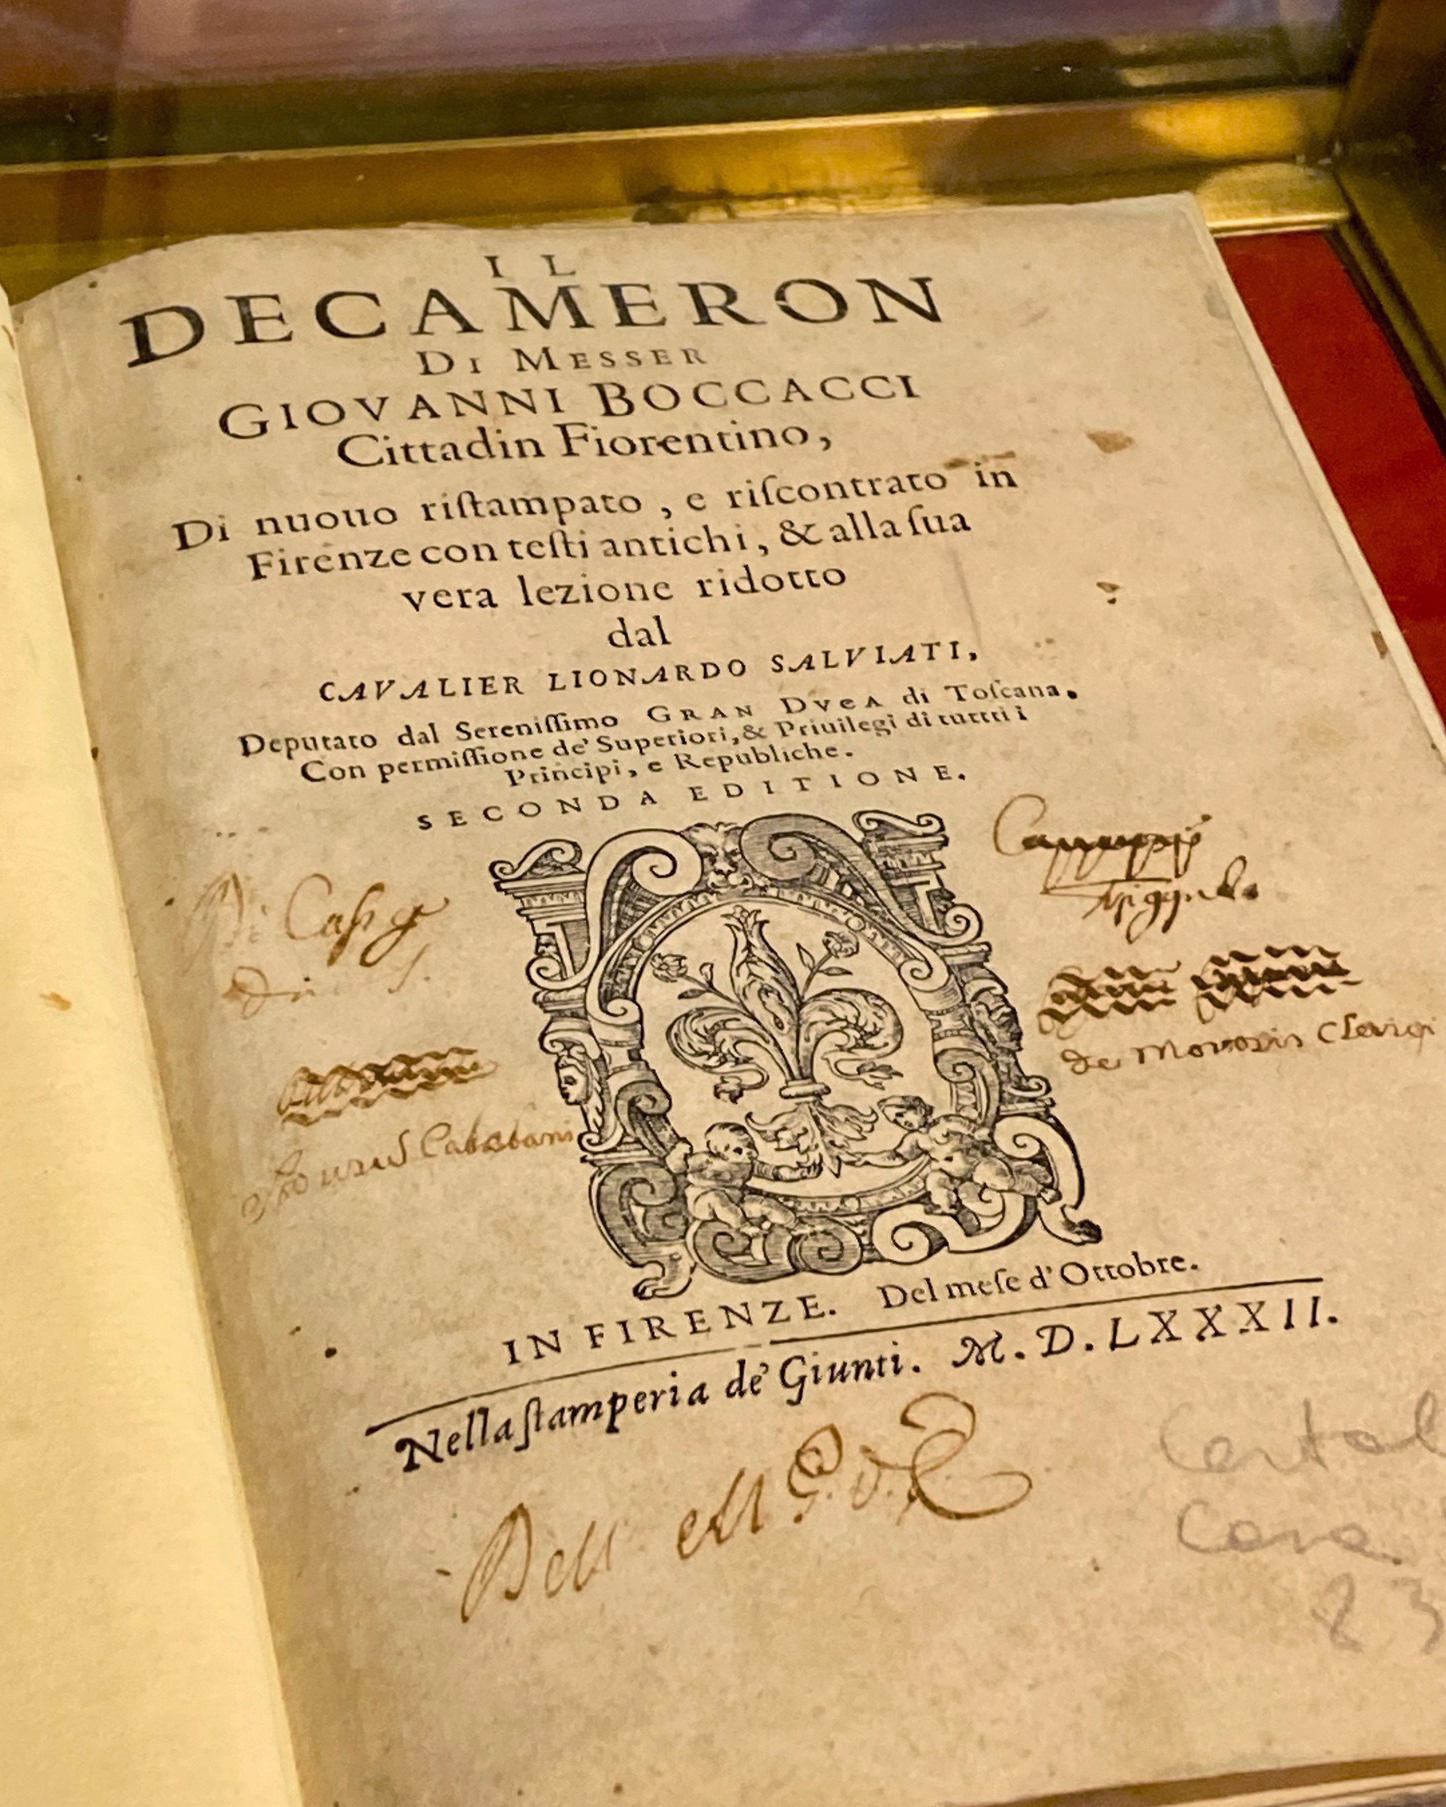 IL
DECAMERON
DI MESSER
GIOVANNI BOCCACCI
Cittadin Fiorentino,
Di nuouo riſtampato, e riſcontrato in
Firenze con teſti antichi, & alla ſua
vera lezione ridotto
dal
CAVALIER LIONARDO SALVIATI,
Deputato dal Sereniſſimo GRAN DVCA di Toſcana.
Con permiſſione de' Superiori, & Priuilegi di tuttti i
Principi, e Republiche.
SECONDA EDITIONE.
Di
de
IN FIRENZE. Del meſe d'Ottobre.
Nella ſtamperia de' Giunti. M. D. LXXXII.
Dell
Casa
23